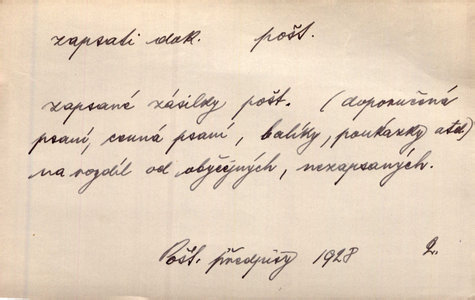 zapsati dok. pošt.
zapsané zásilky pošt. (doporučená
psaní, cenná psaní, balíky, poukázky atd.)
na rozdíl od obyčejných, nezapsaných.
Pošt. předpisy 1928 2.